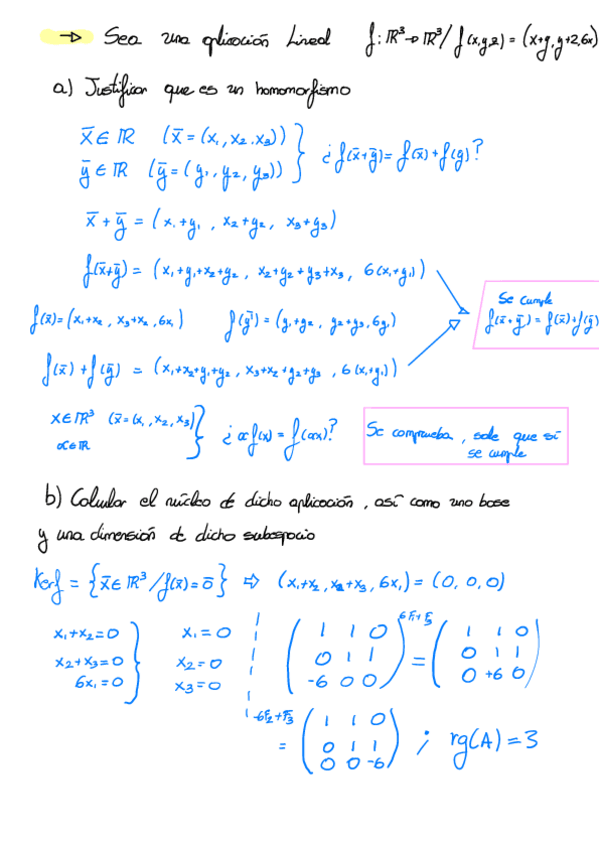 → Sea una aplicación Lineal f: ℝ³→ℝ³/ f(x,y,z) = (x+y, y+z, 6x)
a) Justificar que es un homomorfismo
x̄ ∈ ℝ (x̄ = (x₁, x₂, x₃))
ȳ ∈ ℝ (ȳ = (y₁, y₂, y₃)) } ¿ f(x̄+ȳ) = f(x̄) + f(ȳ) ?
x̄ + ȳ = (x₁+y₁, x₂+y₂, x₃+y₃)
f(x̄+ȳ) = (x₁+y₁+x₂+y₂, x₂+y₂+y₃+x₃, 6(x₁+y₁))
Se cumple
f(x̄+ȳ) = f(x̄)+f(ȳ)
f(x̄) = (x₁+x₂, x₃+x₂, 6x₁) f(ȳ) = (y₁+y₂, y₂+y₃, 6y₁)
f(x̄) + f(ȳ) = (x₁+x₂+y₁+y₂, x₃+x₂+y₂+y₃, 6(x₁+y₁))
x ∈ ℝ³ (x̄ = (x₁, x₂, x₃)
α ∈ ℝ } ¿ αf(x) = f(αx) ?
Se comprueba, sale que sí
se cumple
b) Calcular el núcleo de dicha aplicación, así como una base
y una dimensión de dicho subespacio
Kerf = {x̄ ∈ ℝ³ / f(x̄) = 0̄} ⇒ (x₁+x₂, x₂+x₃, 6x₁) = (0, 0, 0)
x₁+x₂=0
x₂+x₃=0
6x₁=0
x₁=0
x₂=0
x₃=0
6F₁+F₃
1 1 0
0 1 1
-6 0 0
=
1 1 0
0 1 1
0 +6 0
-6F₂+F₃
=
1 1 0
0 1 1
0 0 -6
; rg(A)=3